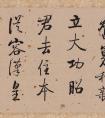 立大功昭
君去住本
從容漢皇